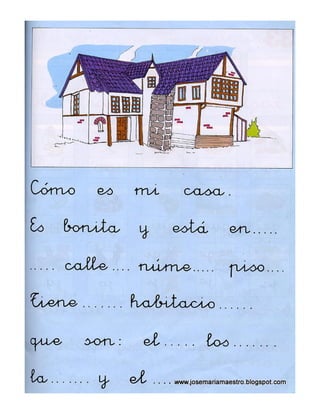 Cómo es mi casa.
Es bonita y está en.....
..... calle .... núme..... piso....
Tiene ....... habitacio ......
que son: el ..... los .......
la ....... y el .... www.josemariamaestro.blogspot.com